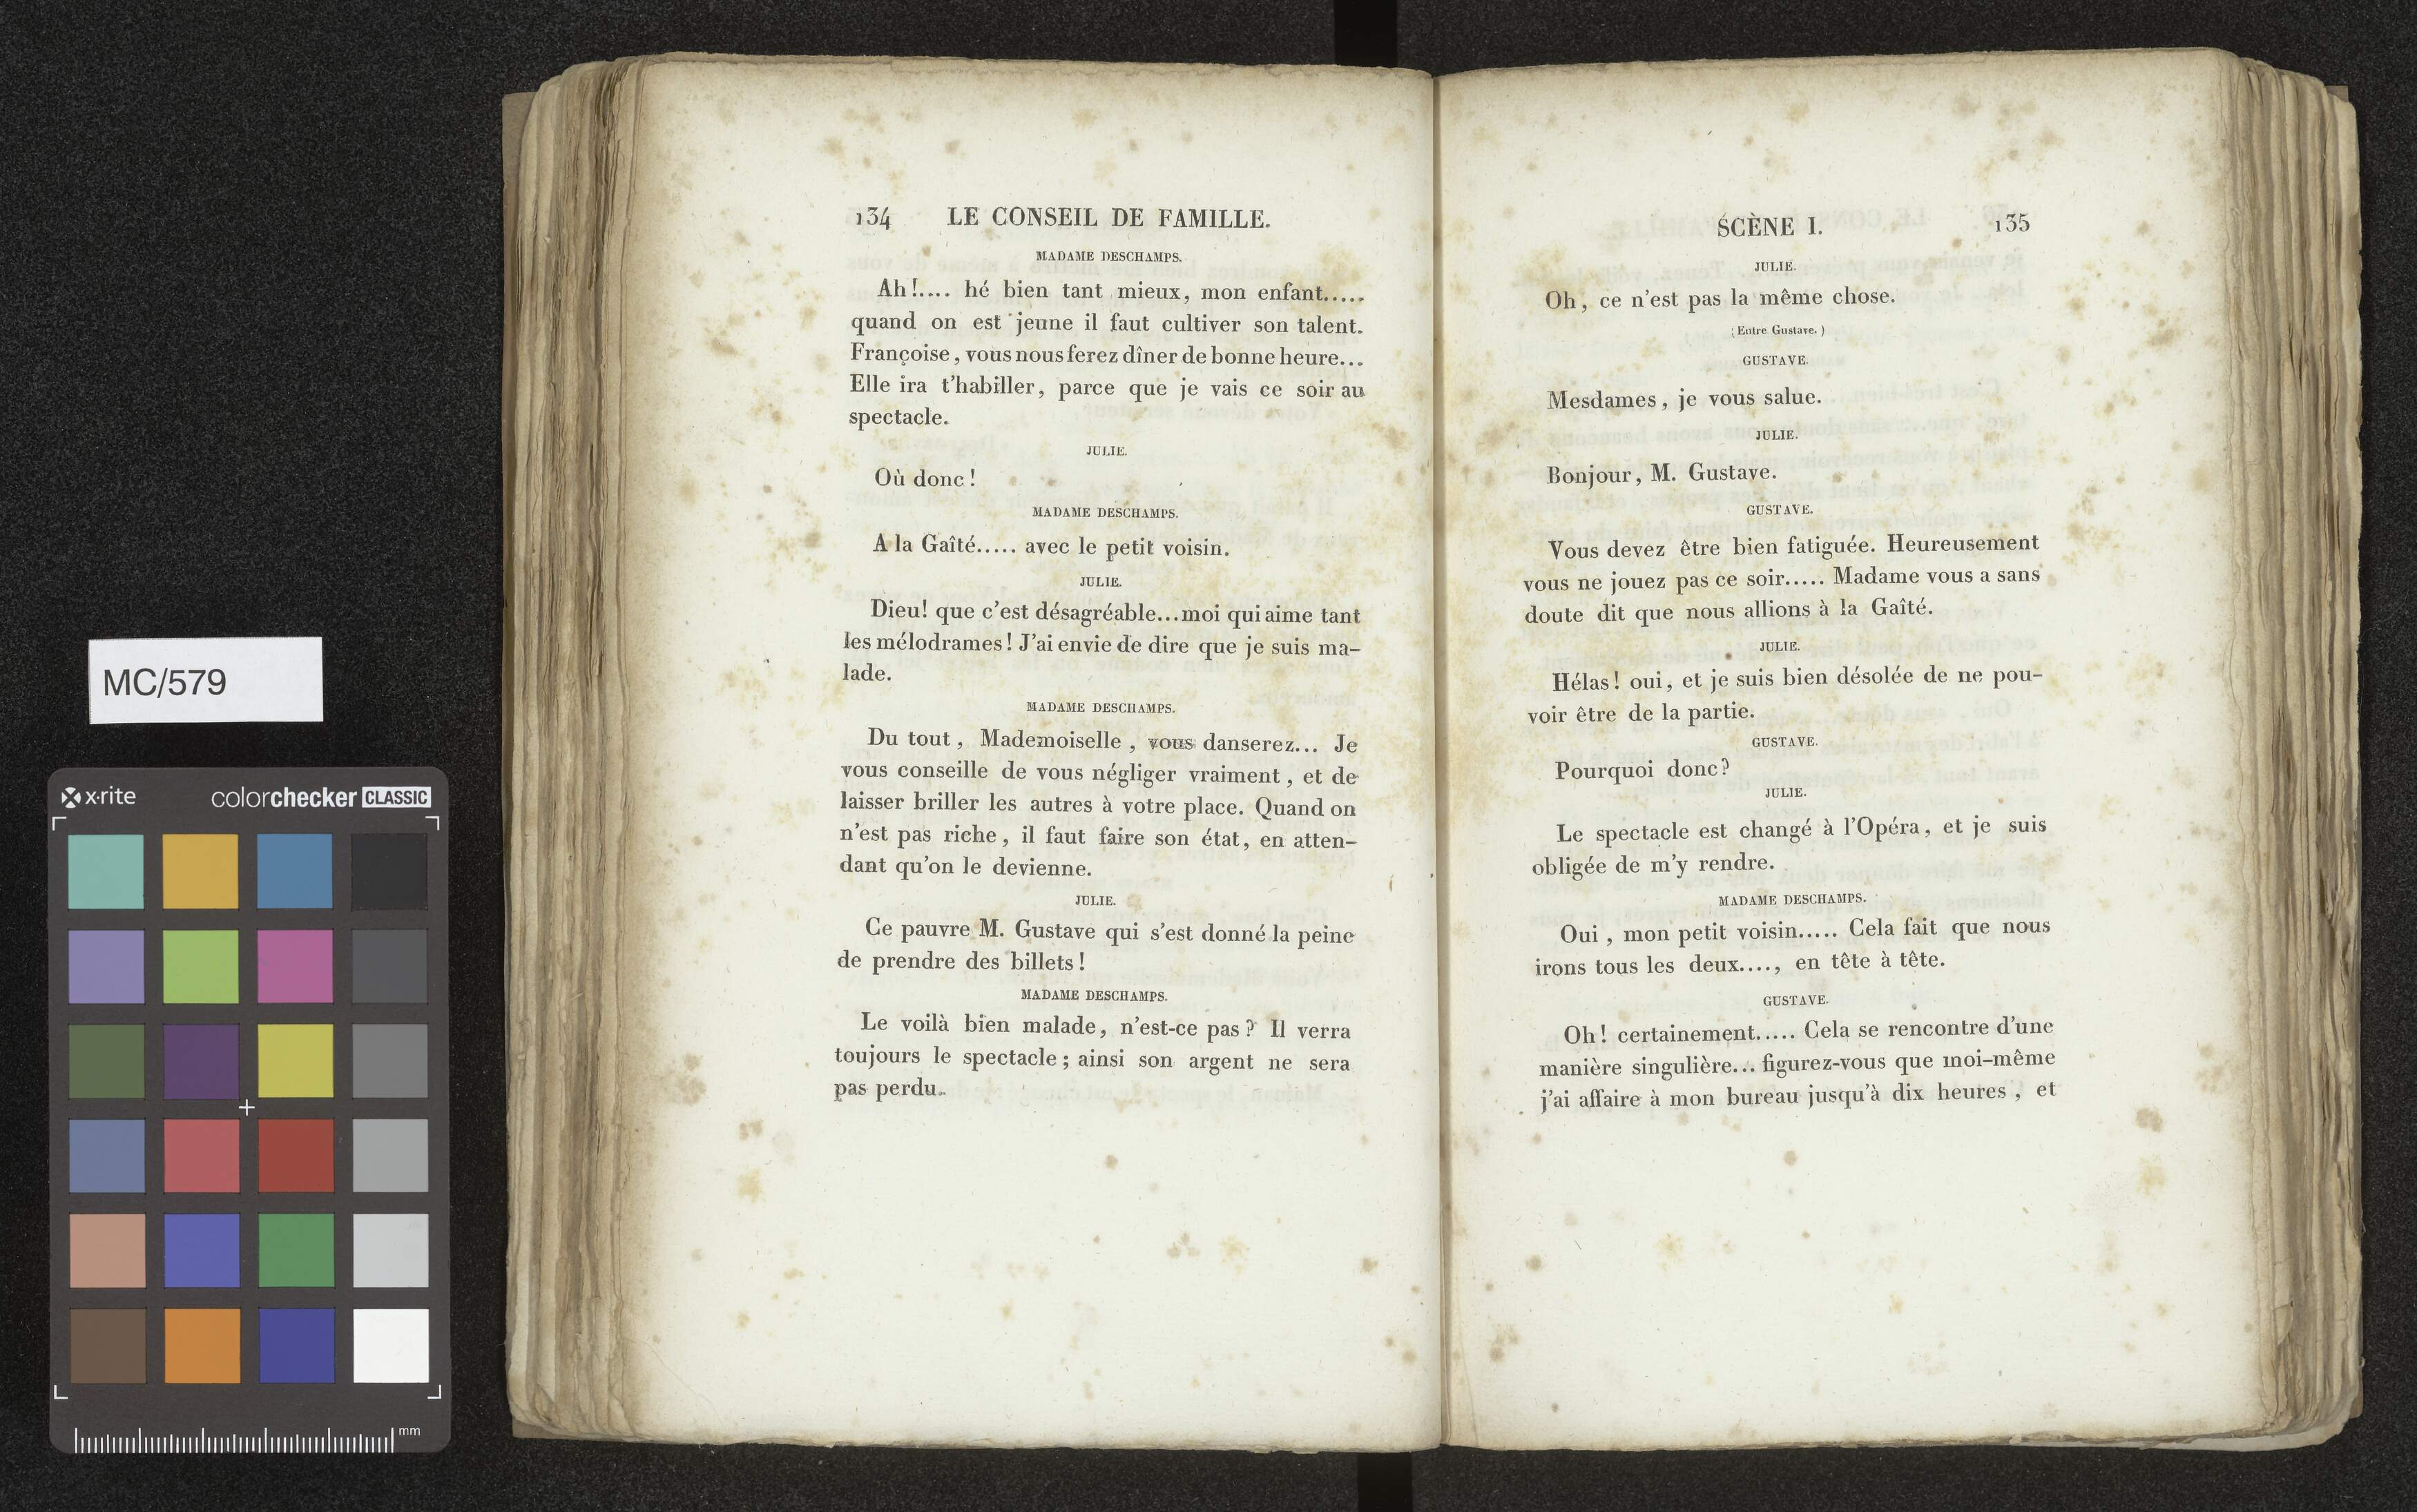 MC/579
x-rite
colorchecker CLASSIC
mm
134 LE CONSEIL DE FAMILLE.
MADAME DESCHAMPS.
Ah!.... hé bien tant mieux, mon enfant.....
quand on est jeune il faut cultiver son talent.
Françoise, vous nous ferez dîner de bonne heure...
Elle ira t'habiller, parce que je vais ce soir au
spectacle.
JULIE.
Où donc!
MADAME DESCHAMPS.
A la Gaîté..... avec le petit voisin.
JULIE.
Dieu! que c'est désagréable...moi qui aime tant
les mélodrames! J'ai envie de dire que je suis ma-
lade.
MADAME DESCHAMPS.
Du tout, Mademoiselle, vous danserez... Je
vous conseille de vous négliger vraiment, et de
laisser briller les autres à votre place. Quand on
n'est pas riche, il faut faire son état, en atten-
dant qu'on le devienne.
JULIE.
Ce pauvre M. Gustave qui s'est donné la peine
de prendre des billets!
MADAME DESCHAMPS.
Le voilà bien malade, n'est-ce pas? Il verra
toujours le spectacle; ainsi son argent ne sera
pas perdu.
SCÈNE I. 135
JULIE.
Oh, ce n'est pas la même chose.
(Entre Gustave.)
GUSTAVE.
Mesdames, je vous salue.
JULIE.
Bonjour, M. Gustave.
GUSTAVE.
Vous devez être bien fatiguée. Heureusement
vous ne jouez pas ce soir..... Madame vous a sans
doute dit que nous allions à la Gaîté.
JULIE.
Hélas! oui, et je suis bien désolée de ne pou-
voir être de la partie.
GUSTAVE.
Pourquoi donc?
JULIE.
Le spectacle est changé à l'Opéra, et je suis
obligée de m'y rendre.
MADAME DESCHAMPS.
Oui, mon petit voisin..... Cela fait que nous
irons tous les deux...., en tête à tête.
GUSTAVE.
Oh! certainement..... Cela se rencontre d'une
manière singulière... figurez-vous que moi-même
j'ai affaire à mon bureau jusqu'à dix heures, et